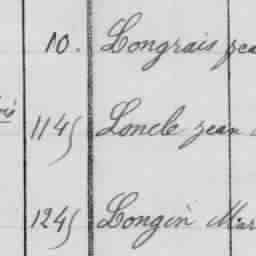 10. Longrais jea
1145 Loncle jean
1245 Longin Mar